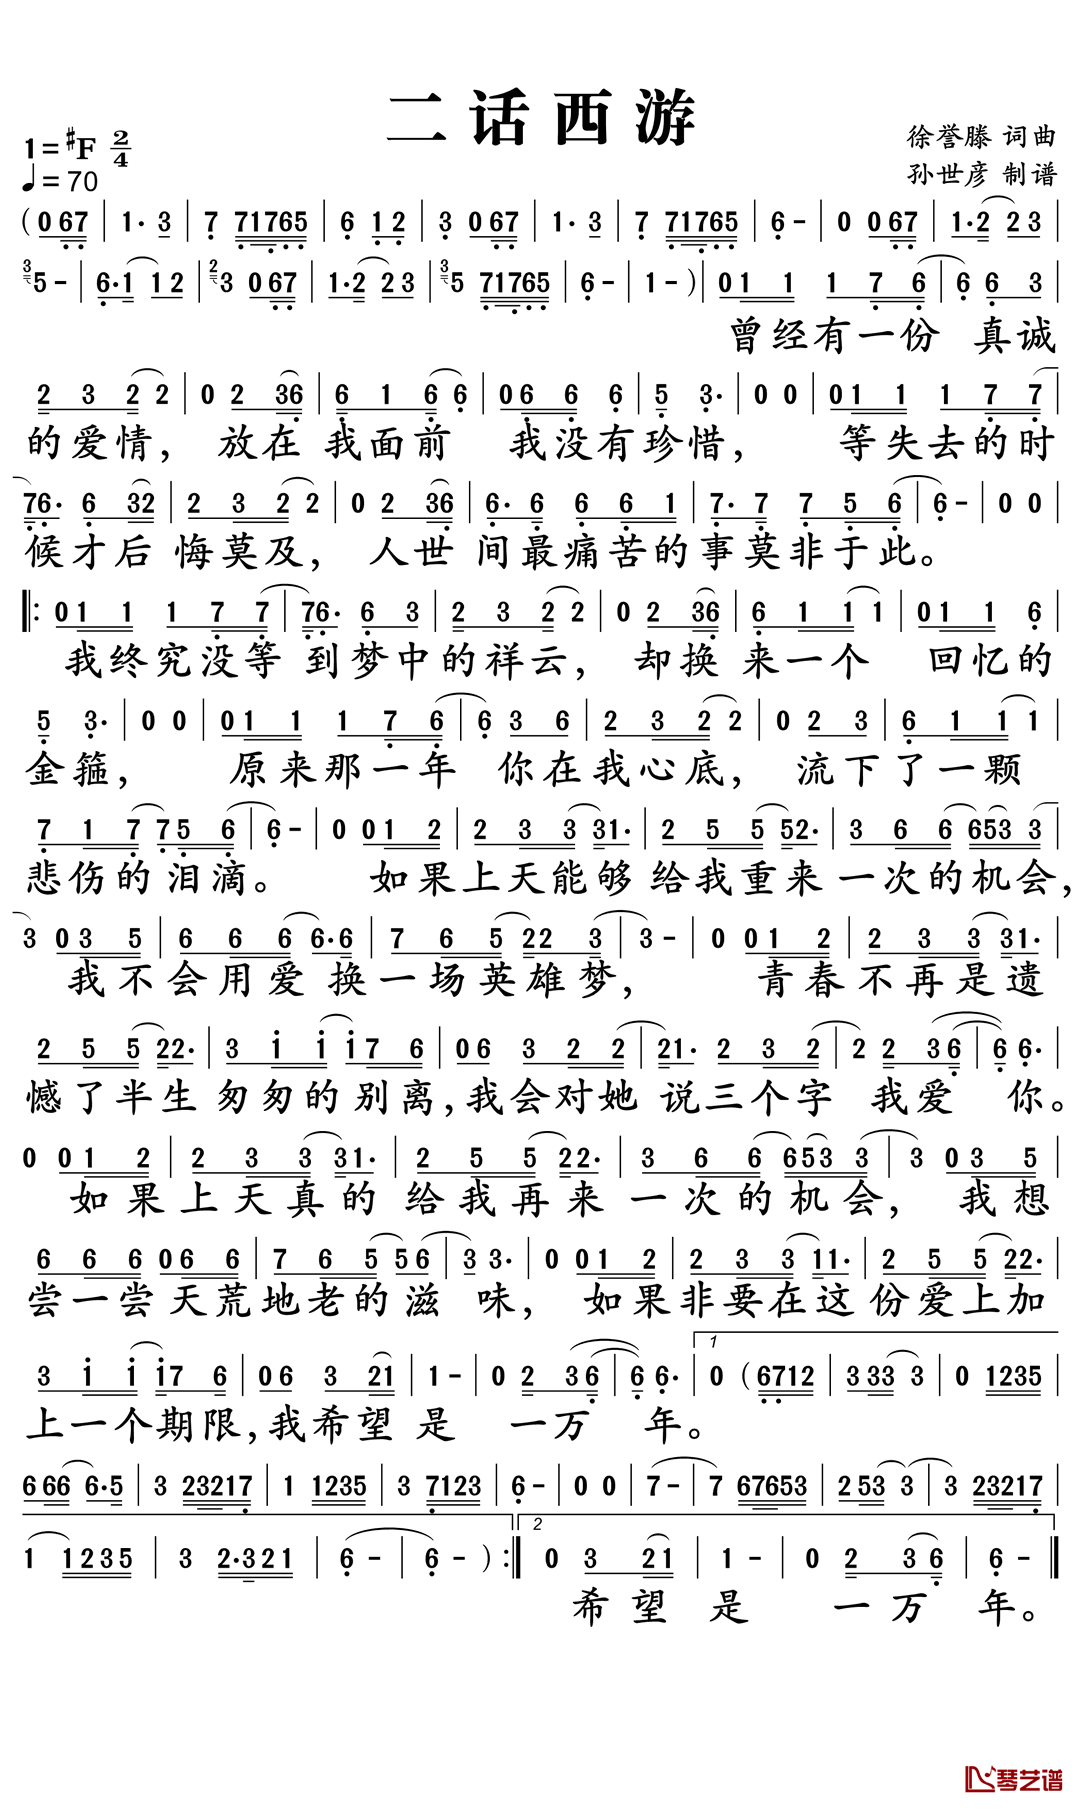 二话西游
1=#F 2/4
徐誉滕 词曲
♩=70
孙世彦 制谱
(0 67 | 1· 3 | 7 71765 | 6 12 | 3 0 67 | 1· 3 | 7 71765 | 6 - | 0 0 67 | 1·2 23 |
3 5 - | 6·1 12 | 2 3 0 67 | 1·2 23 | 3 5 71765 | 6 - | 1 - ) | 0 1 1 1 7 6 | 6 6 3 |
曾经有一份 真诚
2 3 2 2 | 0 2 36 | 6 1 6 6 | 06 6 6 | 5 3· | 0 0 | 01 1 1 7 7 |
的爱情, 放在 我面前 我没有珍惜, 等失去的时
76· 6 32 | 2 3 2 2 | 0 2 36 | 6· 6 6 6 1 | 7· 7 7 5 6 | 6 - | 0 0 |
候才后 悔莫及, 人世 间最痛苦的事莫非于此。
‖: 01 1 1 7 7 | 76· 6 3 | 2 3 2 2 | 0 2 36 | 6 1 1 1 | 01 1 6 |
我终究没等 到梦中的祥云, 却换 来一个 回忆的
5 3· | 0 0 | 01 1 1 7 6 | 6 3 6 | 2 3 2 2 | 0 2 3 | 6 1 1 1 |
金箍, 原来那一年 你在我心底, 流下了一颗
7 1 7 7 5 6 | 6 - | 0 01 2 | 2 3 3 31· | 2 5 5 52· | 3 6 6 653 3 |
悲伤的泪滴。 如果上天能够 给我重来 一次的机会,
3 03 5 | 6 6 6 6·6 | 7 6 5 22 3 | 3 - | 0 01 2 | 2 3 3 31· |
我不会用爱 换一场英雄梦, 青春不再是遗
2 5 5 22· | 3 1 1 17 6 | 06 3 2 2 | 21· 2 3 2 | 2 2 36 | 6 6· |
憾了半生 匆匆的别离,我会对她 说三个字 我爱 你。
0 01 2 | 2 3 3 31· | 2 5 5 22· | 3 6 6 653 3 | 3 03 5 |
如果上天真的 给我再来 一次的机会, 我想
6 6 6 06 6 | 7 6 5 56 | 3 3· | 0 01 2 | 2 3 3 11· | 2 5 5 22· |
尝一尝天荒地老的滋 味, 如果非要在这 份爱上加
1
3 1 1 17 6 | 06 3 21 | 1 - | 0 2 36 | 6 6· | 0 (6712 | 3 33 3 | 0 1235 |
上一个期限,我希望是 一万 年。
6 66 6·5 | 3 23217 | 1 1235 | 3 7123 | 6 - | 0 0 | 7 - | 7 67653 | 2 53 3 | 3 23217 |
2
1 1235 | 3 2·321 | 6 - | 6 - ) :‖ 0 3 21 | 1 - | 0 2 36 | 6 - ‖
希望 是 一万 年。
琴艺谱